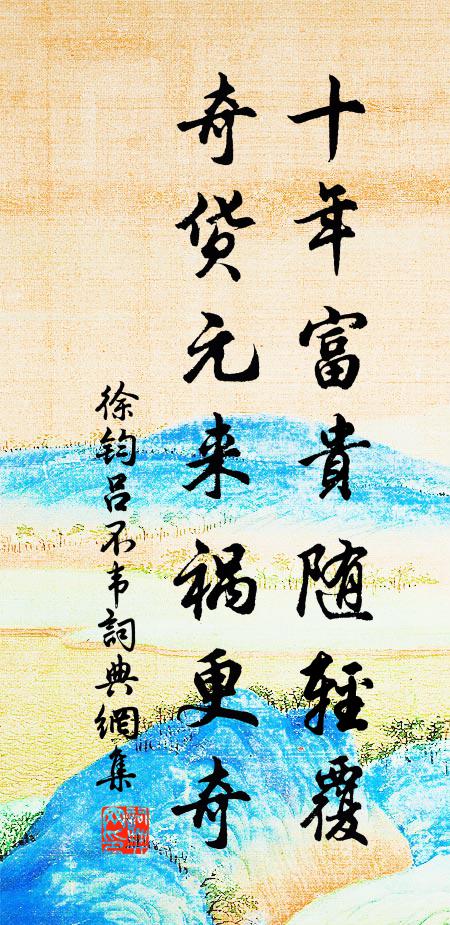 十年富貴随輕覆
奇货元来祸更奇
徐钧吕不韦詞典網集